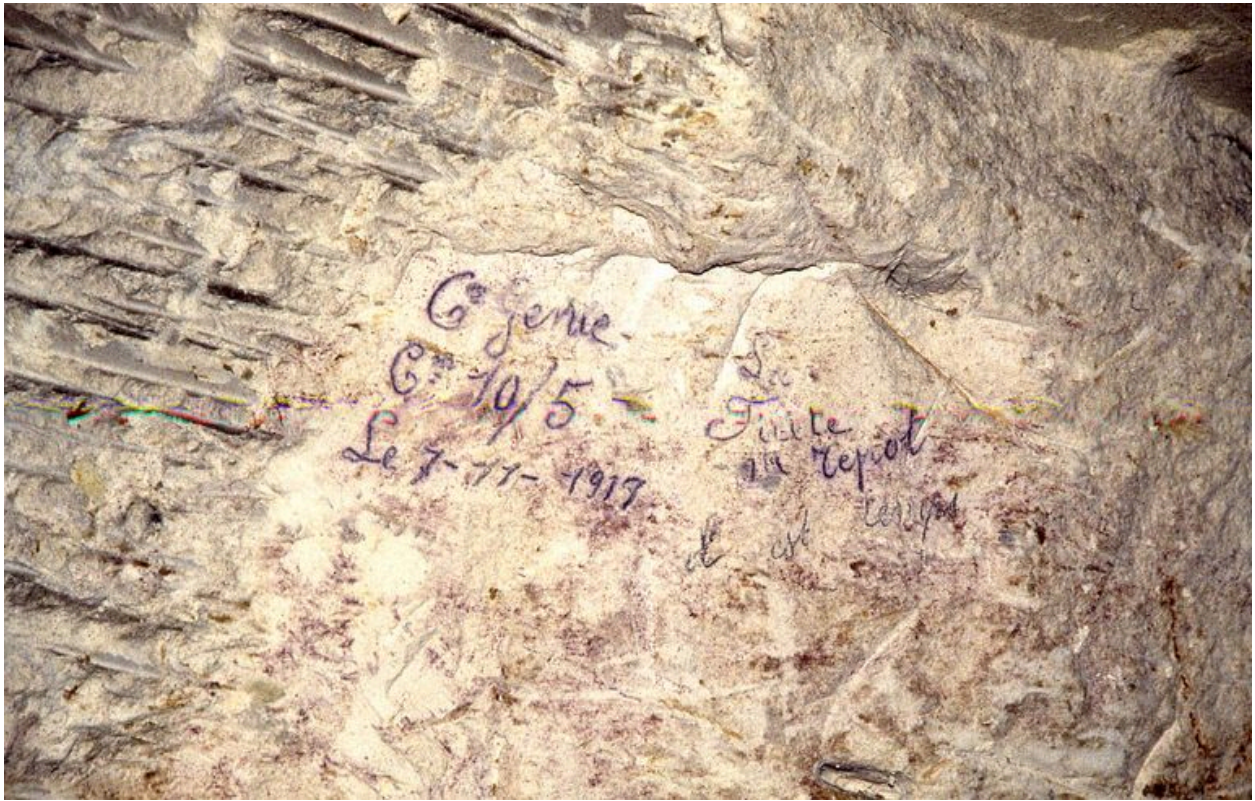 6e Genie
Cie 10/5
Le 7-11-1917
La
Fuite
au repot
il est temps